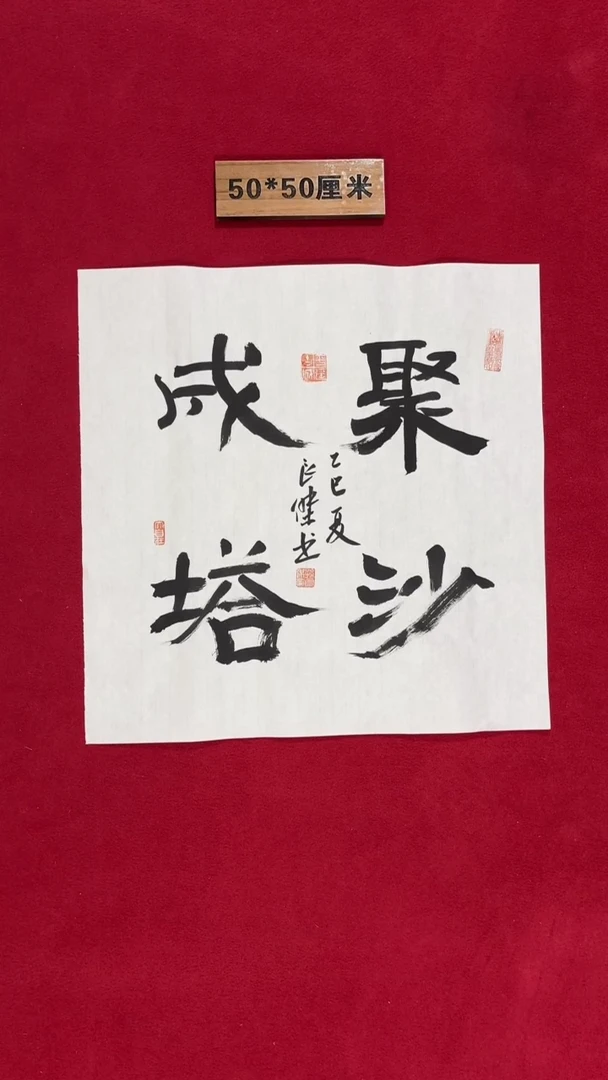 50*50厘米
聚沙
成塔
乙巳夏
长杰书